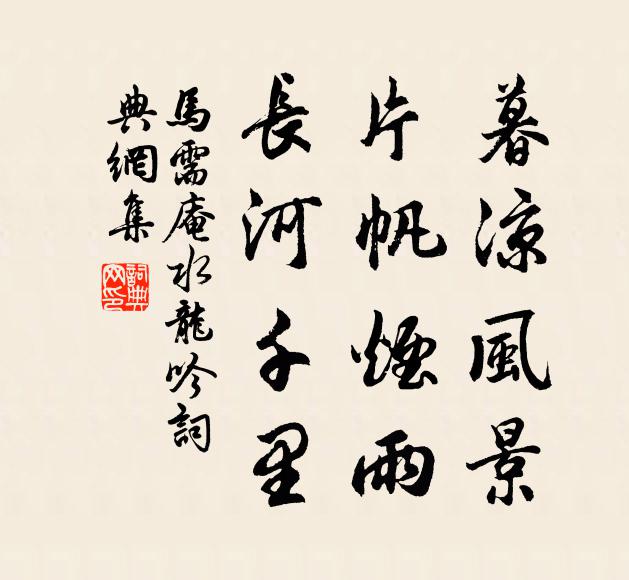 暮涼風景
片帆煙雨
長河千里
馬需庵水龍吟詞
典網集
詞典网印